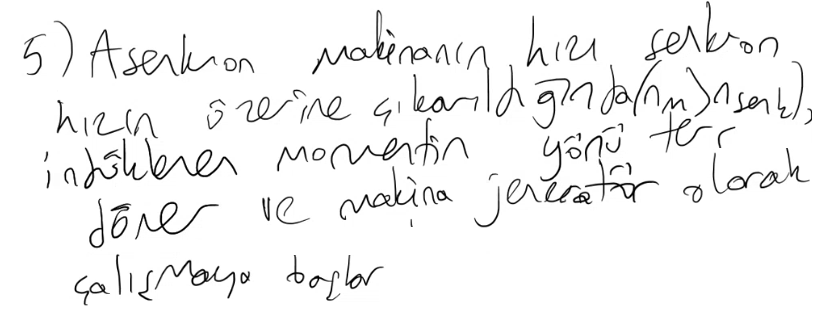 5) Asenkron makinanın hızı senkron
hızın üzerine çıkarıldığında (nm > nsenk),
indüklenen momentin yönü ters
döner ve makina jeneratör olarak
çalışmaya başlar